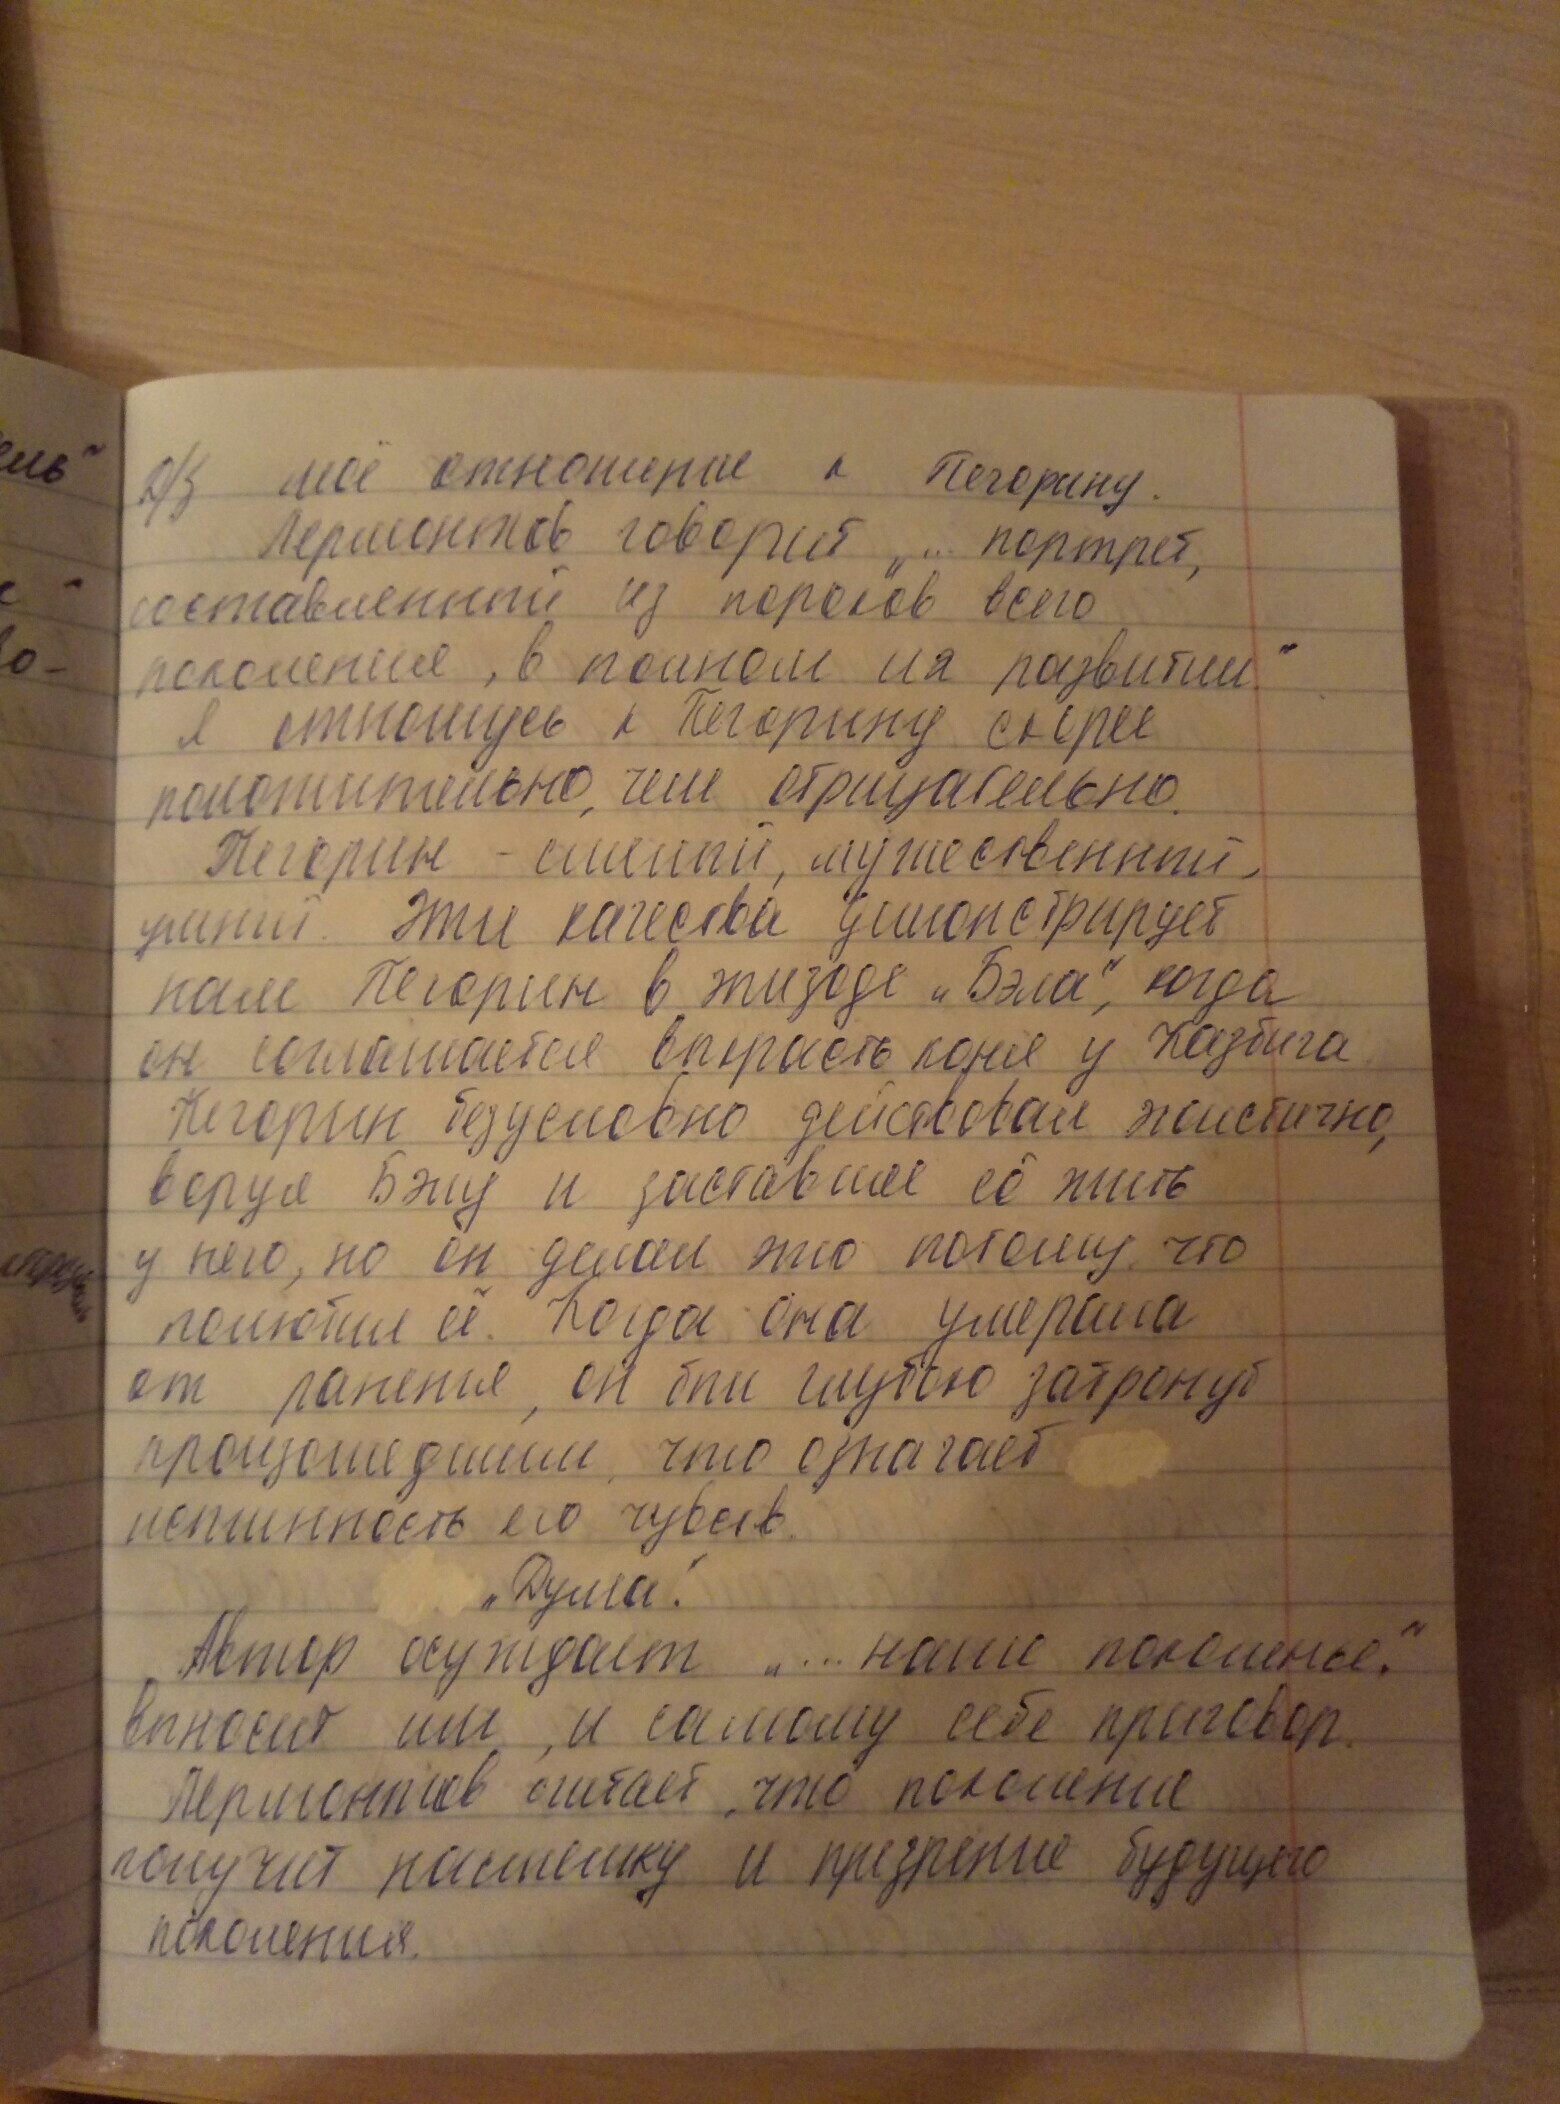 Д/З моё отношение к Печорину.
Лермонтов говорит „... портрет,
составленный из пороков всего
поколения, в полном их развитии“
Я отношусь к Печорину скорее
положительно, чем отрицательно.
Печорин - смелый, мужественный,
умный. Эти качества демонстрирует
нам Печорин в эпизоде „Бэла“, когда
он соглашается выкрасть коня у Казбича
Печорин безусловно действовал эгоистично,
воруя Бэлу и заставляя её жить
у него, но он делал это потому, что
полюбил её. Когда она умерала
от ранения, он был глубоко затронут
произошедшим, что означает
истинность его чувств.
„Дума“.
Автор осуждает „... наше поколенье“.
выносит им, и самому себе приговор.
Лермонтов считает, что поколение
получит насмешку и презрение будущего
поколения.
ель“
во-